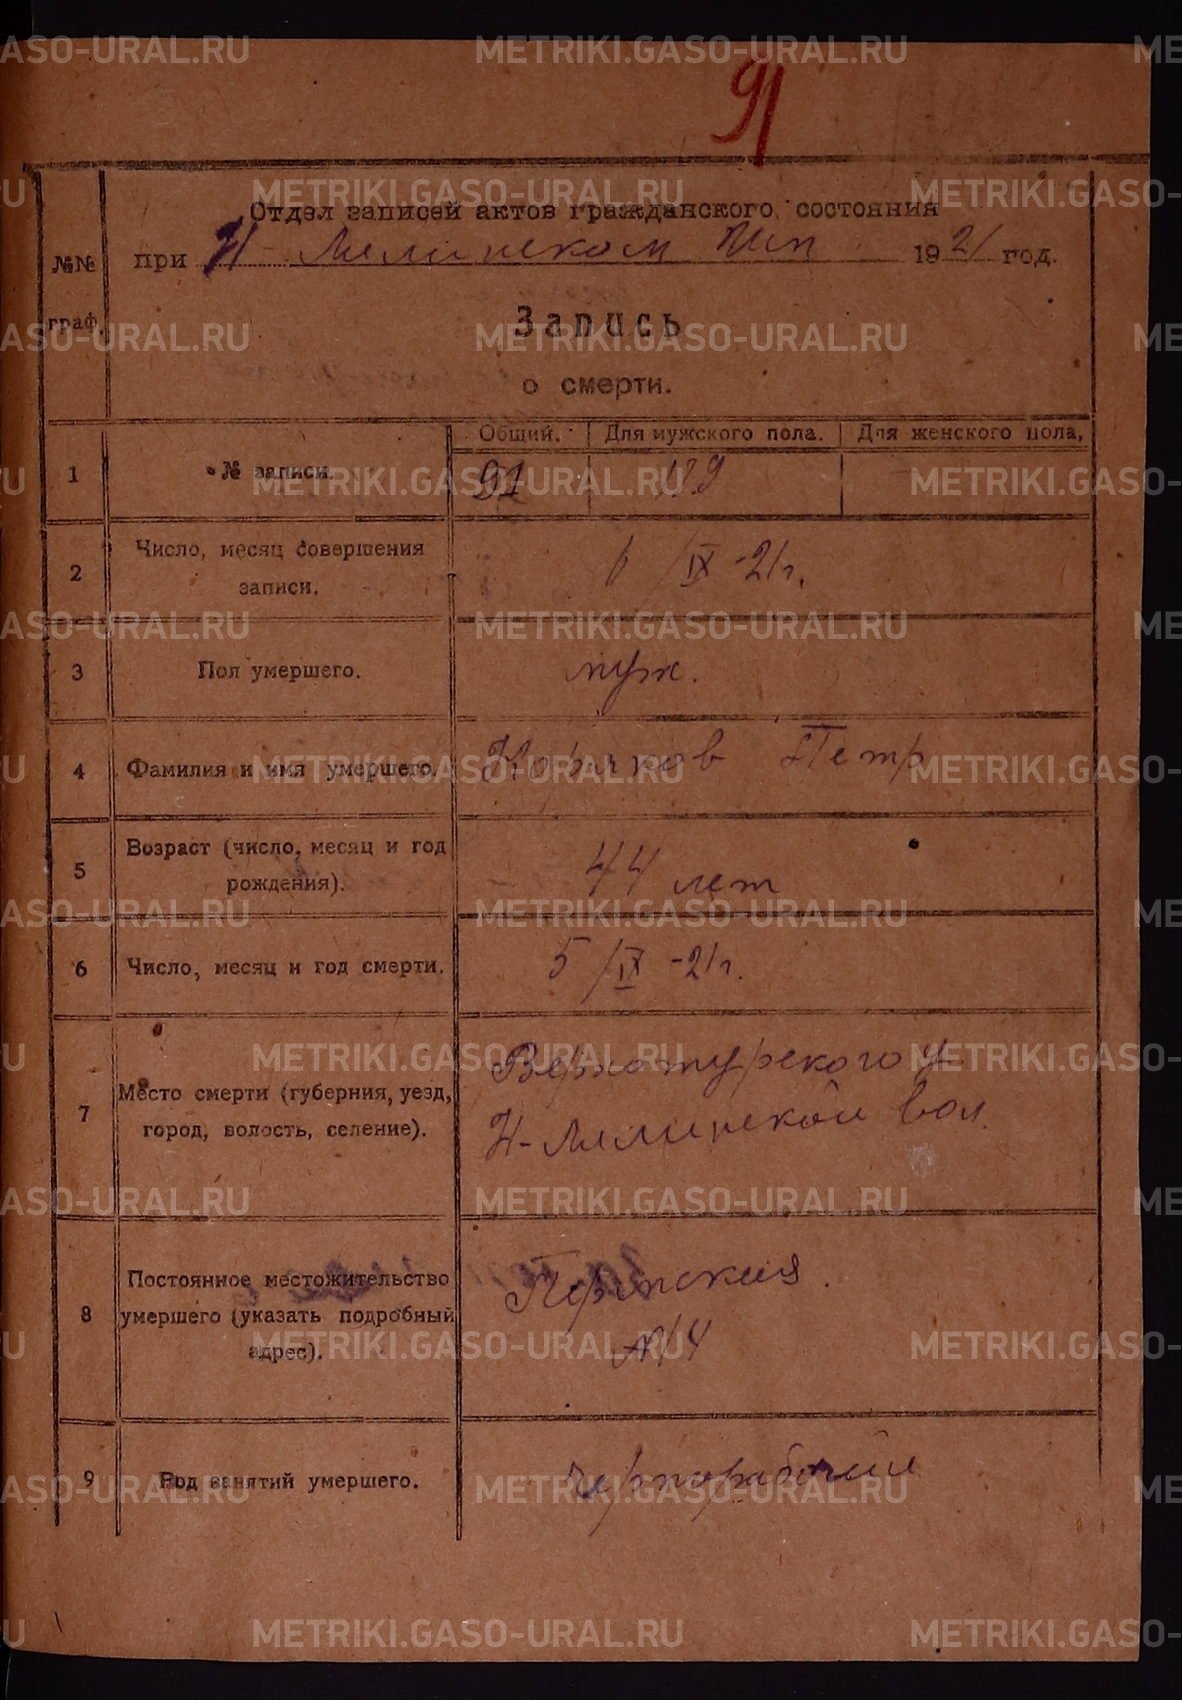 91
Отдел записей актов гражданского состояния
при Н-Лялинском Исп 1921 год.
№№ граф.
Запись
о смерти.
Общий. Для мужского пола. Для женского пола,
1 № записи. 91
2 Число, месяц совершения записи. 6/IX-21г.
3 Пол умершего. муж.
4 Фамилия и имя умершего. Коряков Петр
5 Возраст (число, месяц и год рождения). 44 лет
6 Число, месяц и год смерти. 5/IX-21г.
7 Место смерти (губерния, уезд, город, волость, селение). Верхотурского у
Н-Лялинской вол.
8 Постоянное местожительство умершего (указать подробный адрес). Пермская.
№14
9 Род занятий умершего. Чернорабочий
METRIKI.GASO-URAL.RU